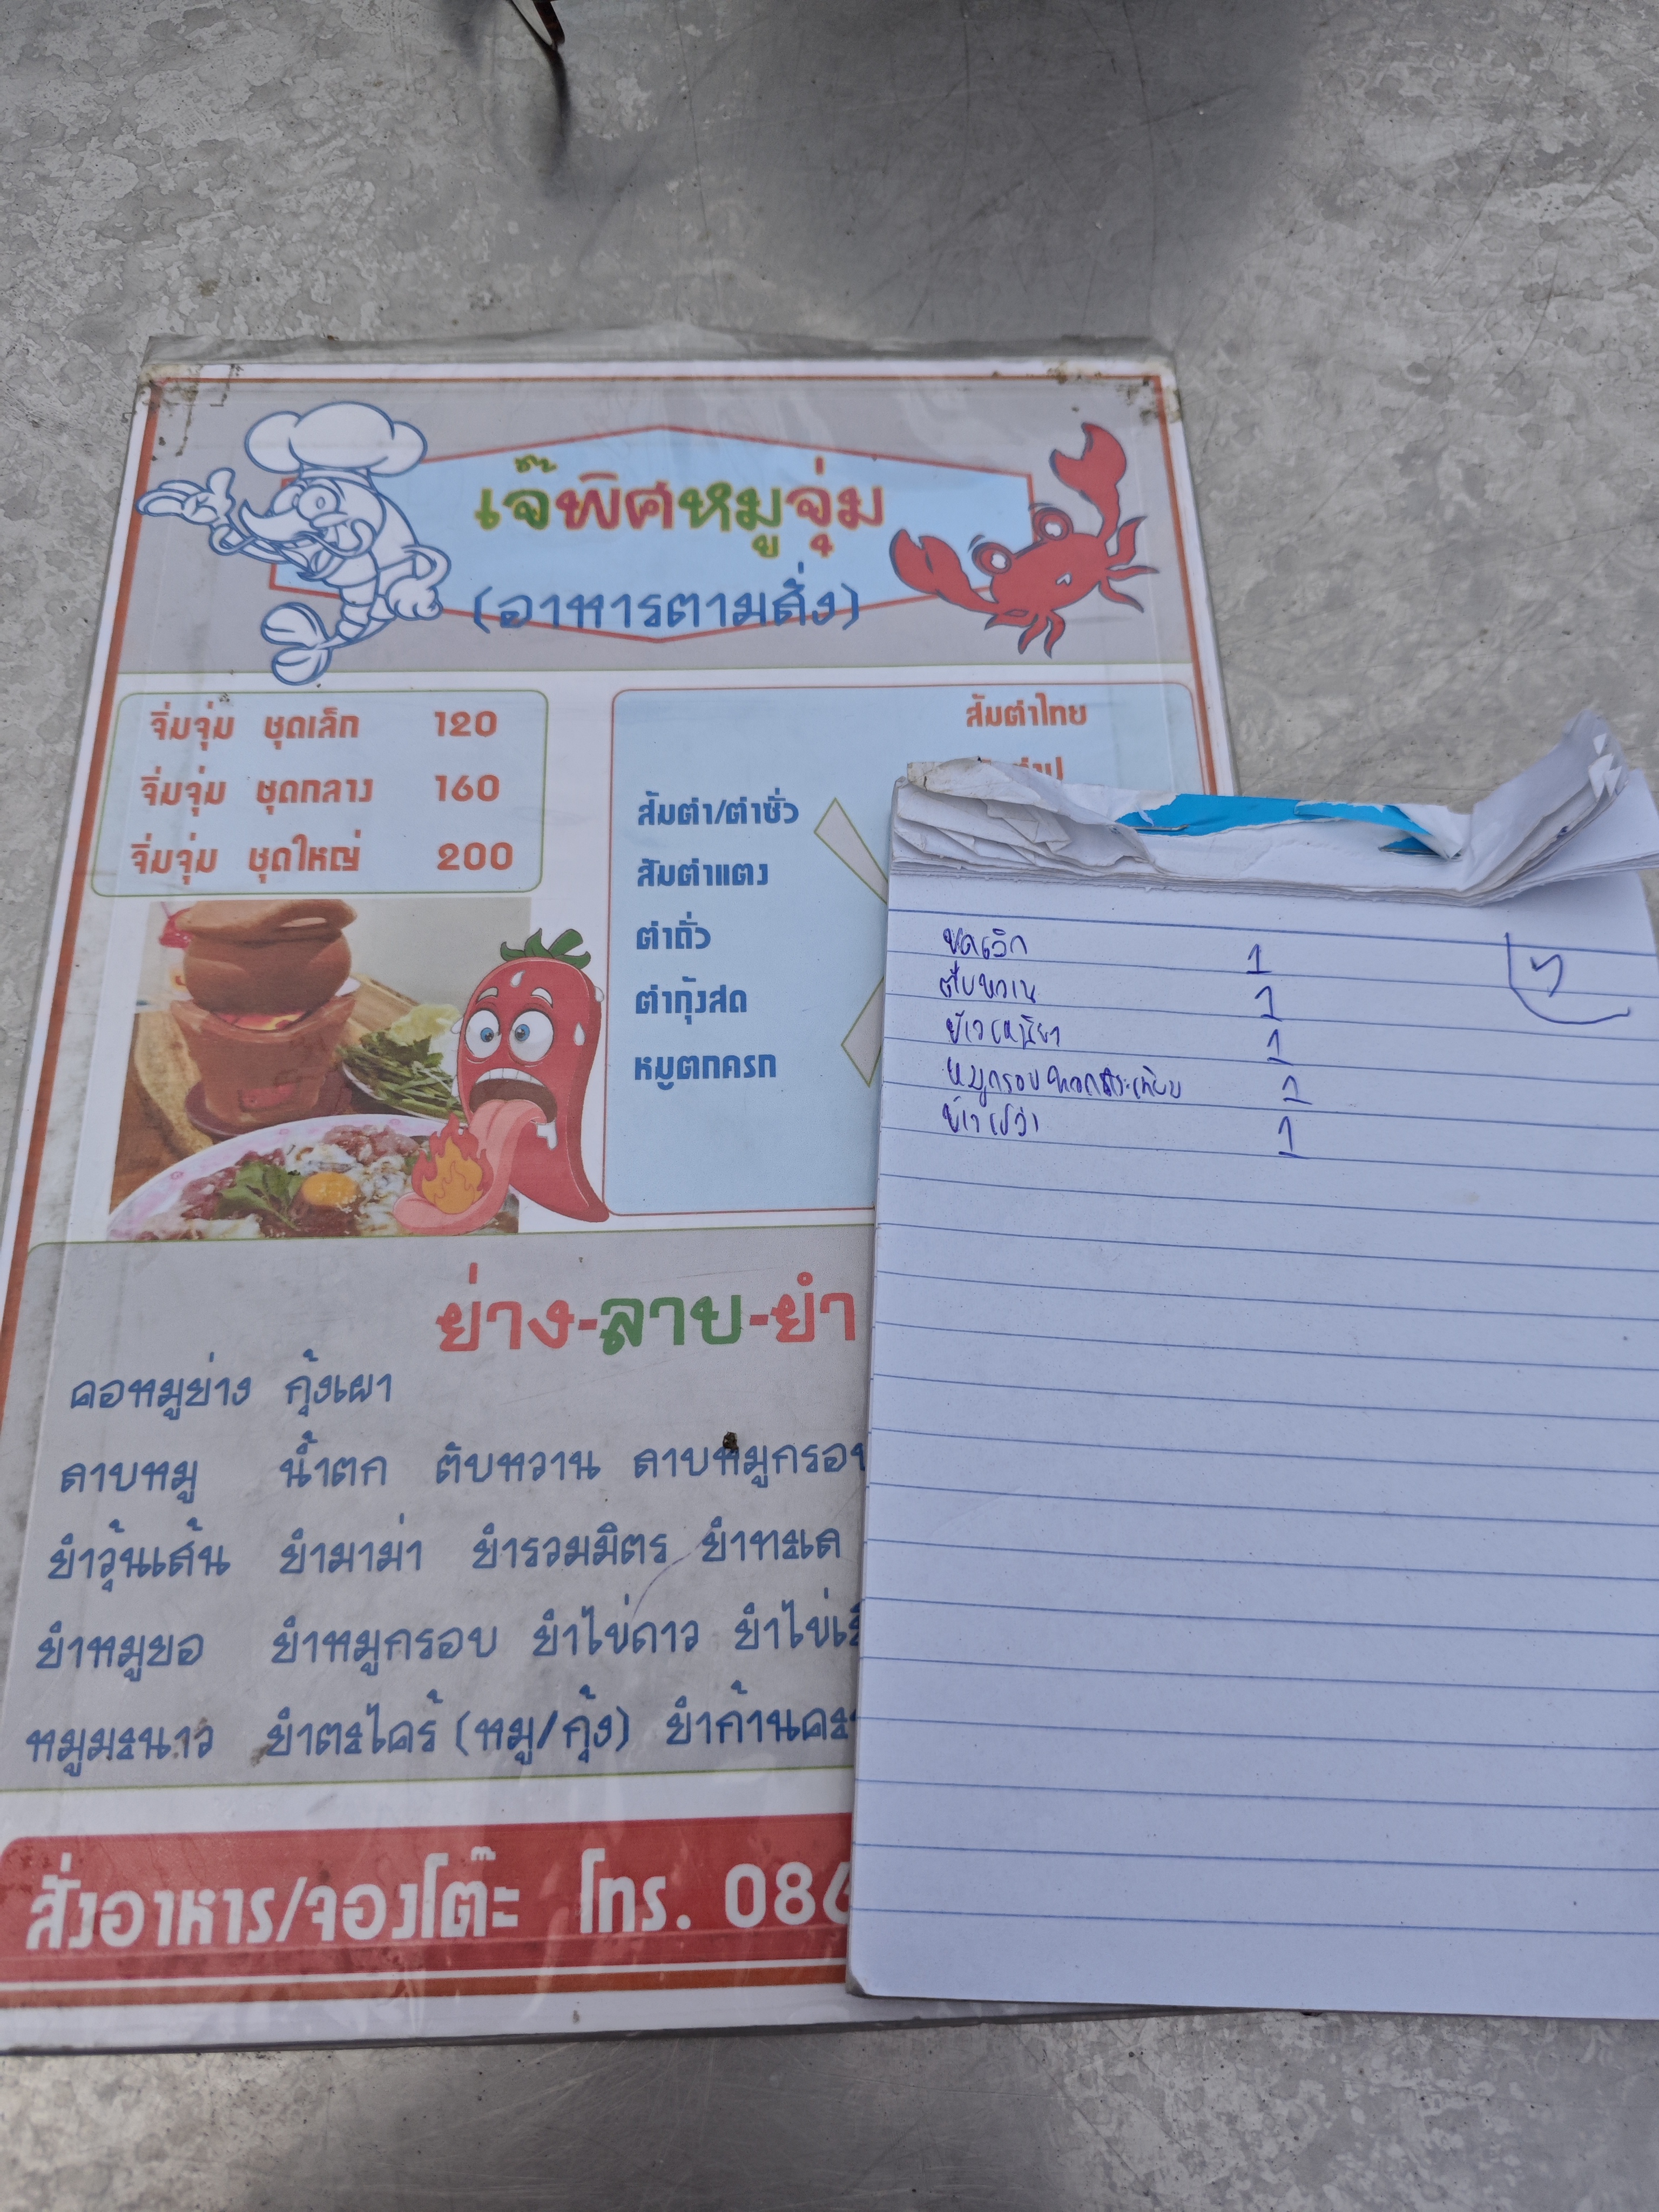 เจ๊พิศหมูจุ่ม
(อาหารตามสั่ง)
จิ่มจุ่ม ชุดเล็ก 120
จิ่มจุ่ม ชุดกลาง 160
จิ่มจุ่ม ชุดใหญ่ 200
ส้มตำไทย
ส้มตำ/ตำซั่ว
ส้มตำแตง
ตำถั่ว
ตำกุ้งสด
หมูตกครก
ย่าง-ลาบ-ยำ
คอหมูย่าง กุ้งเผา
ลาบหมู น้ำตก ตับหวาน ลาบหมูกรอบ
ยำวุ้นเส้น ยำมาม่า ยำรวมมิตร ยำทะเล
ยำหมูยอ ยำหมูกรอบ ยำไข่ดาว ยำไข่เยี
หมูมะนาว ยำตะไคร้ (หมู/กุ้ง) ยำก้านคะ
สั่งอาหาร/จองโต๊ะ โทร. 086
ชุดเล็ก 1
ตับหวาน 1
ข้าวเหนียว 1
หมูกรอบทอดกระเทียม 1
ข้าวเปล่า 1